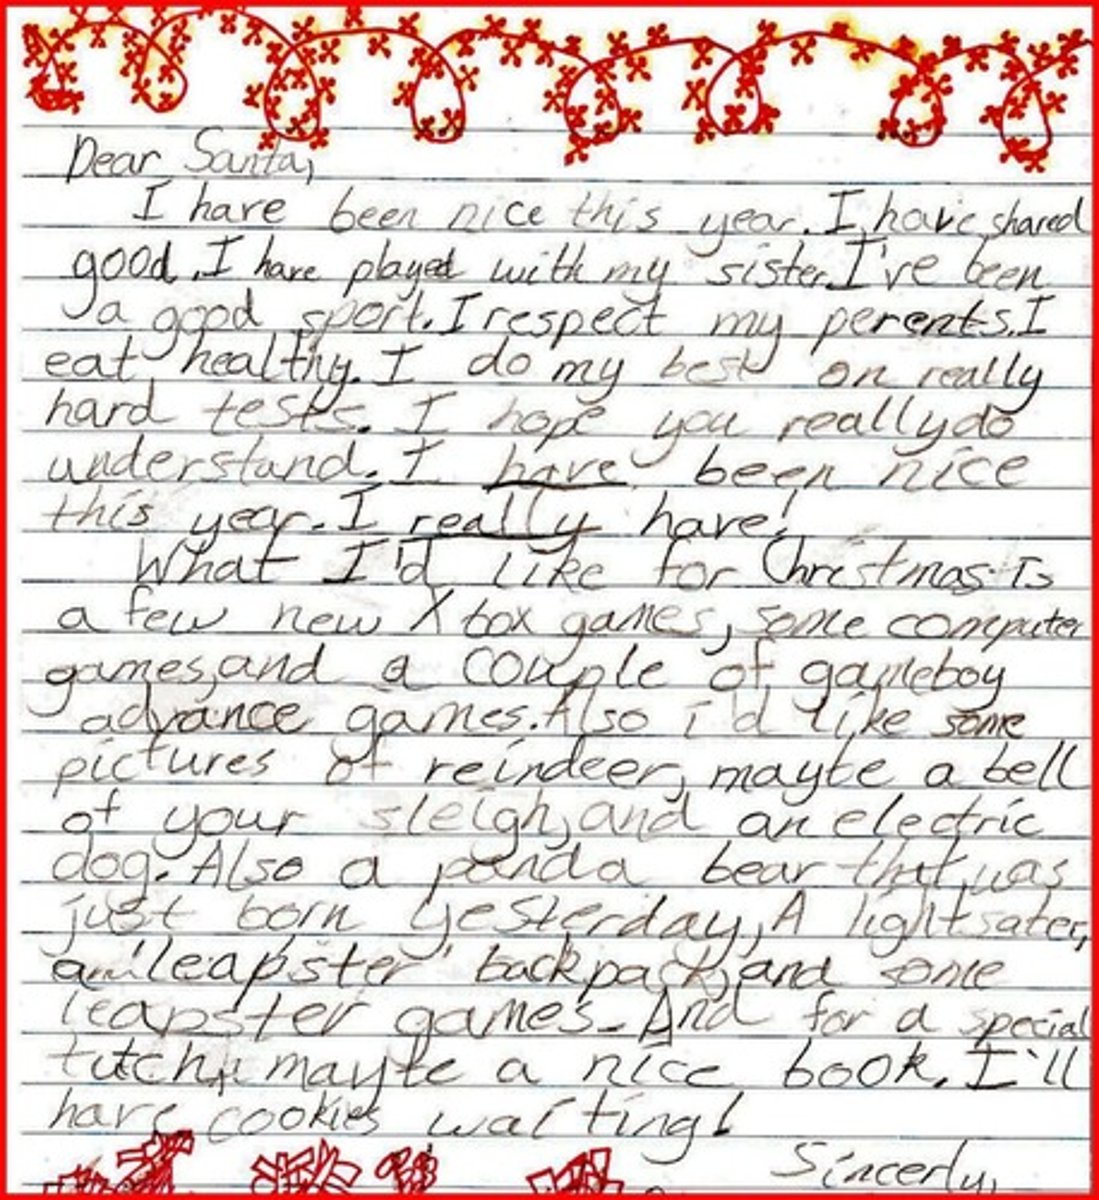 Dear Santa,
I have been nice this year. I have shared
good. I have played with my sister. I've been
a good sport. I respect my perents. I
eat healthy. I do my best on really
hard tests. I hope you really do
understand. I have been nice
this year. I really have!
What I'd like for Christmas is
a few new Xbox games, some computer
games, and a couple of gameboy
advance games. Also i'd like some
pictures of reindeer, maybe a bell
of your sleigh, and an electric
dog. Also a panda bear that was
just born yesterday, A lightsaber,
a leapster backpack, and some
leapster games. And for a special
tutch, maybe a nice book. I'll
have cookies waiting!
Sincerly,